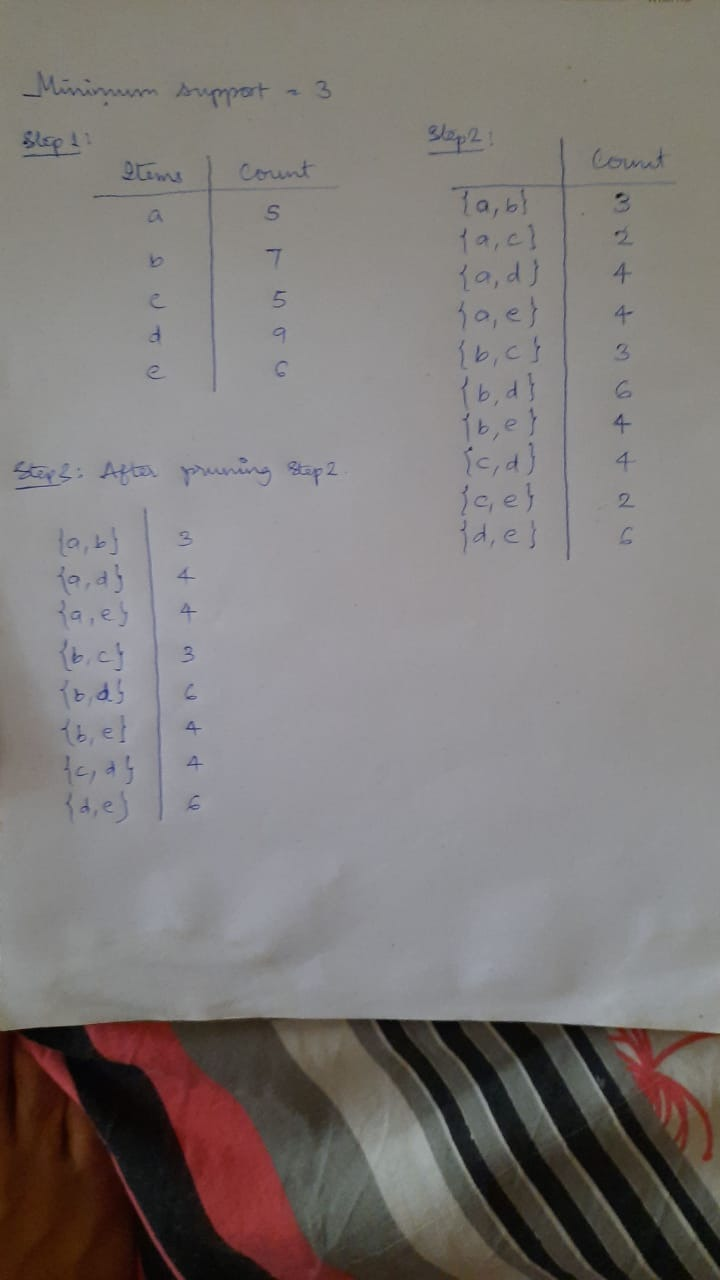 Minimum support = 3
Step 1:
Items Count
a 5
b 7
c 5
d 9
e 6
Step 2:
Count
{a,b} 3
{a,c} 2
{a,d} 4
{a,e} 4
{b,c} 3
{b,d} 6
{b,e} 4
{c,d} 4
{c,e} 2
{d,e} 6
Step 3: After pruning Step 2.
{a,b} 3
{a,d} 4
{a,e} 4
{b,c} 3
{b,d} 6
{b,e} 4
{c,d} 4
{d,e} 6